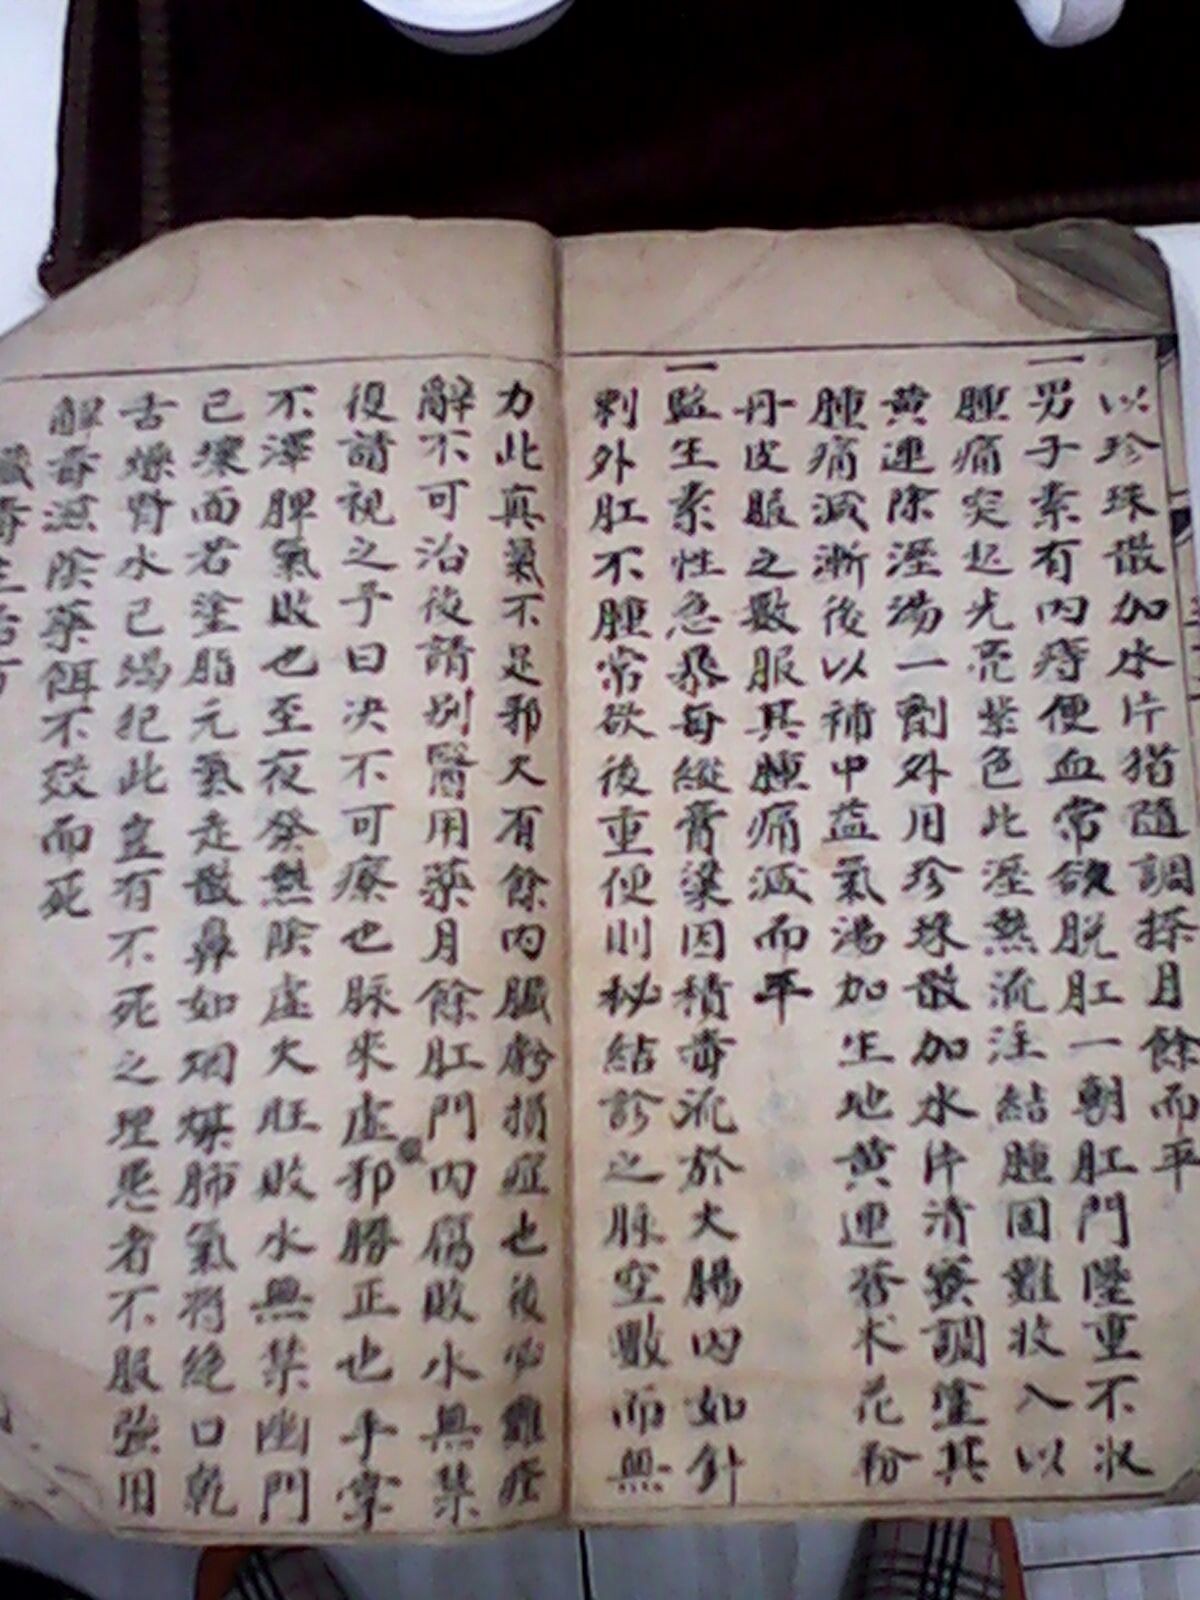 以珍珠散加水片猪隨調搽月餘而平
一男子素有內痔便血常欲脫肛一朝肛門墜重不收
腫痛突起光亮紫色此溼熱流注結腫固難收入以
黃連除溼湯一劑外用珍珠散加水片清寒調塗其
腫痛減漸後以補中益氣湯加生地黃連蒼术花粉
丹皮服之數服其腫痛減而平
一監生素性急暴每縱膏粱因積毒流於大腸內如針
刺外肛不腫常欲後重便則秘結診之脉空數而無
力此真氣不足邪火有餘內臟虧損症也後必難痊
辭不可治後請別醫用藥月餘肛門內腐敗水無禁
復請視之予曰决不可療也脉來虛邪勝正也手掌
不澤脾氣敗也至夜發熱陰虛火旺敗水無禁幽門
已壞面若塗脂元氣走散鼻如烟煤肺氣將絕口乾
舌燥腎水已竭犯此豈有不死之理患者不服強用
解毒滋陰藥餌不效而死
臟毒主治方